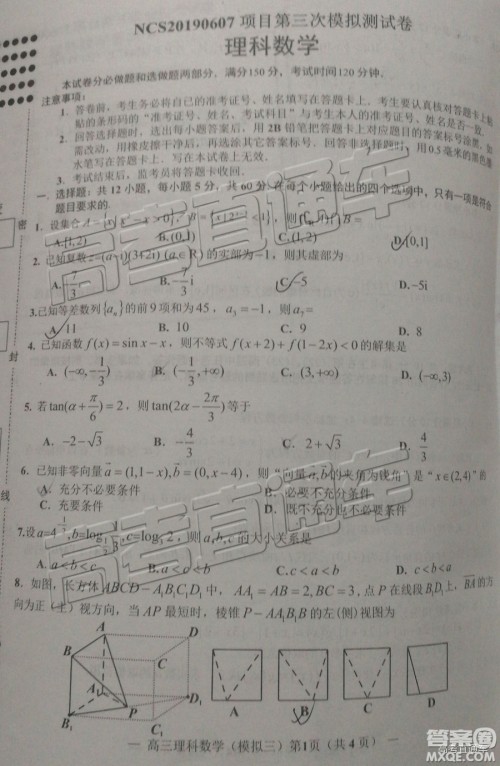 NCS20190607 项目第三次模拟测试卷
理科数学
本试卷分必做题和选做题两部分，满分150分，考试时间120分钟。
注意事项：
1. 答卷前，考生务必将自己的准考证号、姓名填写在答题卡上，考生要认真核对答题卡上粘
贴的条形码的“准考证号、姓名、考试科目”与考生本人的准考证号、姓名是否一致.
2. 回答选择题时，选出每小题答案后，用2B铅笔把答题卡对应题目的答案标号涂黑，如
需改动，用橡皮擦干净后，再选涂其它答案标号.回答非选择题时，用0.5毫米的黑色墨
水笔写在答题卡上，写在本试卷上无效.
3. 考试结束后，监考员将答题卡收回.
一．选择题：共12小题，每小题5分，共60分，在每小题给出的四个选项中，只有一项是符合
题目要求的.
1. 设集合
A.[1,2) B.(0,1) C.(1,2) D.(0,1]
2. 已知复数z=(a-i)(3+2i) (a∈R)的实部为-1，则其虚部为
A. -7/3 B. -7/3 i C. -5 D. -5i
3.已知等差数列{aₙ}的前9项和为45，a₃=-1，则a₇=
A. 11 B. 10 C. 9 D. 8
4. 已知函数f(x)=sin x-x，则不等式f(x+2)+f(1-2x)<0的解集是
A. (-∞,-1/3) B. (-1/3,+∞) C. (3,+∞) D. (-∞,3)
5. 若tan(α+π/6)=2，则tan(2α-2π/3)等于
A. -2-√3 B. -4/3 C. 2+√3 D. 4/3
6. 已知非零向量a=(1,1-x),b=(0,x-4)，则“向量a,b的夹角为锐角”是“x∈(2,4)”的
A. 充分不必要条件 B. 必要不充分条件
C. 充要条件 D. 既不充分也不必要条件
7.设 c=log₃2，则a,b,c的大小关系是
A.a<b<c B. a<c<b C.c<a<b D. c<b<a
8. 如图，长方体ABCD-A₁B₁C₁D₁中，AA₁=AB=2,BC=3,点P在线段B₁D₁上，BA的方
向为正（主）视方向，当AP最短时，棱锥P-AA₁B₁B的左(侧)视图为
A B C D A₁ B₁ C₁ D₁ P
A B C D
— 高三理科数学（模拟三）第1页（共4页）—
密
封
线
高考直通车
高考直通车